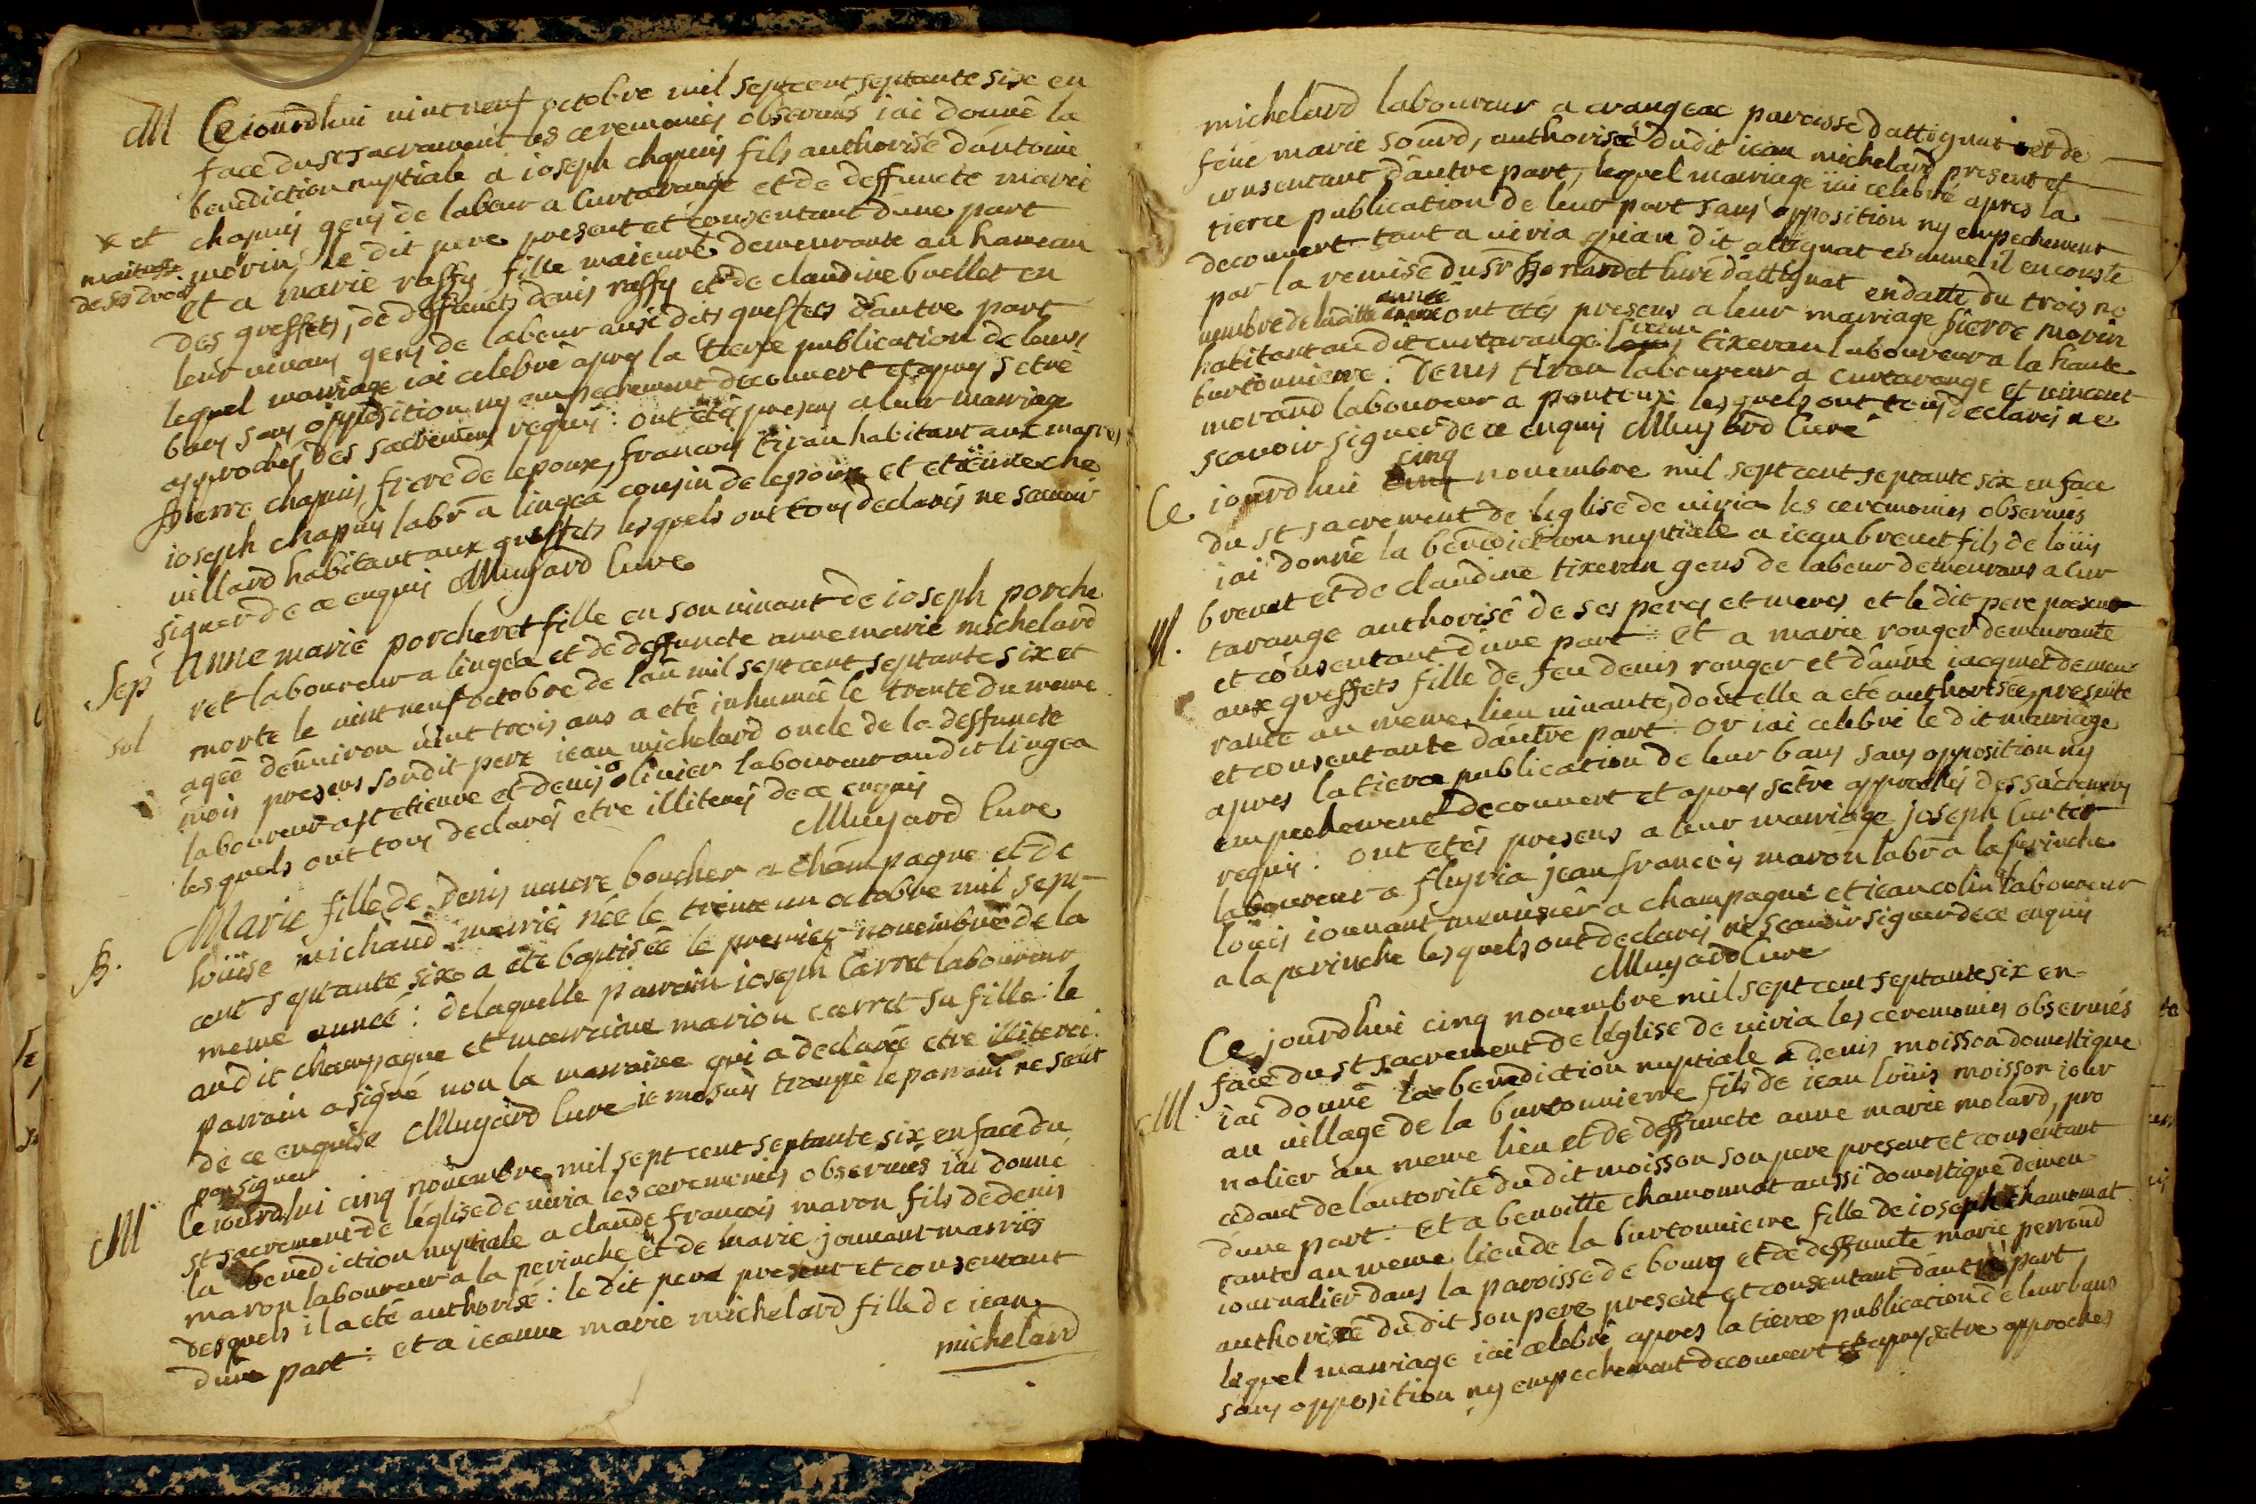 M Ce iourdhui vint neuf octobre mil sept cent septante six en
face du st sacrement les ceremonies observés iai donné la
benediction nuptiale a ioseph chapuis fils authorisé dantoine
chapuis gens de labeur a Curtarange et de deffuncte marie
x et maitresse de ses droits
morin, le dit pere present et consentant dune part
et a marie raffy fille maieure demeurante au hameau
des greffets, de deffuncts denis raffy et de claudine buellet en
leur vivans gens de labeur ausi dits greffets dautre part
lequel mariage iai celebré apres la tierce publication de leurs
bans sans opposition ny empechement decouvert et apres setre
approchés des sacremens requis : ont étés presens a leur marriage
pierre chapuis frere de lepoux, francois tiran habitant aux mapes
ioseph chapuis labr a lingea cousin de lepoux et etienne che
villard habitant aux greffets lesquels ont tous declarés ne scavoir
signer de ce enquis Muyard Cure
Sep sol
Anne marie porcheret fille en son vivant de ioseph porche
ret laboureur a lingéa et de deffuncte anne marie michelard
morte le vint neuf octobre de lan mil sept cent septante six et
agée denviron vint trois ans a eté inhumée le trente du meme
mois presens son dit pere iean michelard oncle de la deffuncte
laboureur a st etienne et denis olivier laboureur au dit lingea
lesquels ont tous declarés etre illiterés de ce enquis
Muyard Cure
B. Marie fille de Denis vuivre boucher a champagne et de
loüise michaud mariés née le trente un octobre mil sept
cent septante six a eté baptisée le premier novembre de la
meme année : de laquelle parrain ioseph Carret laboureur
au dit champagne et marraine marion carret sa fille : le
parrain a signé non la marraine qui a declarée etre illiterée
de ce enquise Muyard Cure ie me suis trompé le parrain ne scait
pas signer
M Ce iourdhui cinq novembre mil sept cent septante six en face du
st sacrement de léglise de viria les ceremonies observés iai donné
la benediction nuptiale a claude francois maron fils de denis
maron laboureur a la perinche et de marie jouvant marriés
desquels il a eté authorisé : le dit pere present et consentant
dune part : et a ieanne marie michelard fille de iean
michelard
michelard laboureur a crangeac paroisse dattignat et de
feüe marie sourd, authorisée du dit iean michelard present et
consentant dautre part, lequel mariage iai celebré apres la
tierce publication de leur part sans opposition ny empechement
decouvert tant a viria quau dit attignat comme il en conste
par la remise du sr curé dattignat en datte du trois no
vembre de la ditte année ont étés presens a leur marriage pierre morin
habitant au dit curtarange tixeran laboureur a la haute
burtonniere : Denis tiran laboureur a Curtarange et vincent
morand laboureur a ponteux lesquels ont tous declarés ne
scavoir signer de ce enquis Muyard Curé
Ce iourdhui cinq novembre mil sept cent septante six en face
du st sacrement de léglise de viria les ceremonies observées
iai donné la benediction nuptiale a iean brevet fils de loüis
brevet et de claudine tixeran gens de labeur demeurans a Cur
M. tarange authorisé de ses peres et meres et le dit pere present
et consentant dune part : et a marie ronger demeurante
aux greffets fille de feu denis ronger et danne iacquet demeu
rante au meme lieu vivante, dont elle a eté authorisée, presente
et consentante dautre part. Or iai celebré le dit marriage
apres la tierce publication de leur bans sans opposition ny
empechement decouvert et apres setre approchés des sacremens
requis : ont etés presens a leur marriage joseph Curtet
laboureur a fluyria jean francois maron labr a la perinche
loüis iouvant menusier a champagne et iean colin laboureur
a la perinche lesquels ont declarés ne scavoir signer de ce enquis
Muyard Cure
Ce jourdhui cinq novembre mil sept cent septante six en
face du st sacrement de léglise de viria les ceremonies observées
M. iai donné la benediction nuptiale a denis moisson domestique
au village de la burtonnierre fils de iean loüis moisson iour
nalier au meme lieu et de deffuncte anne marie molard, pro
cedant de lautorité du dit moisson son pere present et consentant
dune part : et a benoitte chamonnat aussi domestique demeu
rante au meme lieu de la burtonniere fille de ioseph chamonnat
iournalier dans la paroisse de bourg et de deffuncte marie perroud
authorisée du dit son pere present et consentant dautre part
lequel marriage iai celebré apres la tierce publication de leur bans
sans opposition ny empechement decouvert et apres setre approches